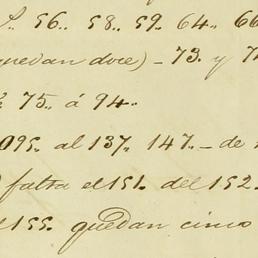 56.. 58.. 59. 64.. 66
quedan doce) - 73. y 7
75.. á 94..
095. al 137. 147.. - de
falta el 151. del 152.
155. quedan cinco